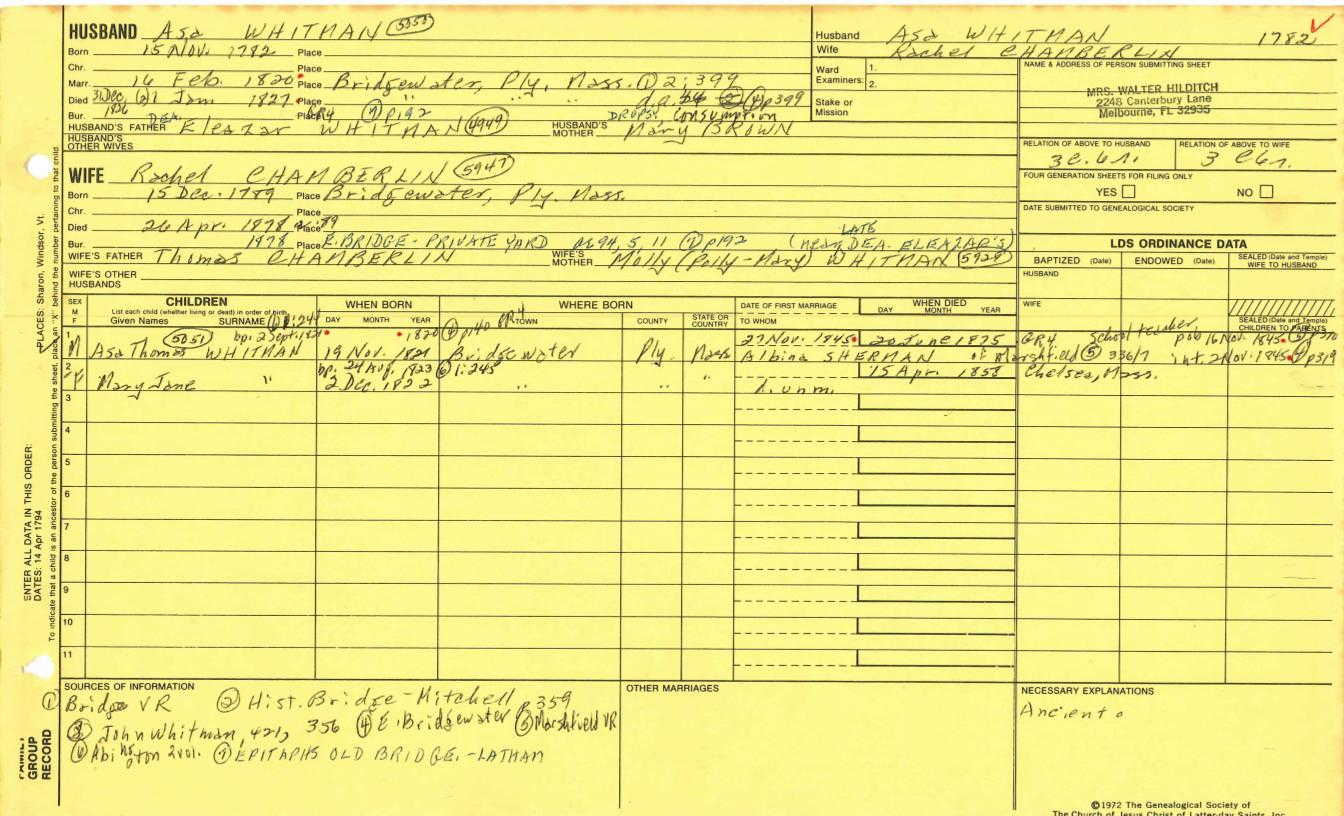 HUSBAND Asa WHITMAN 5353
Born 15 Nov. 1782 Place
Chr. Place
Marr. 16 Feb. 1820 Place Bridgewater, Ply, Mass. ① 2:399
Died 31 Dec, ② 1 Jan 1827 Place " " " ④ p399
Bur. 1826 Place GR4 ⑦ p192 DROPSY, Consumption
HUSBAND'S FATHER DEA. Eleazar WHITMAN 4949 HUSBAND'S MOTHER Mary BROWN
HUSBAND'S OTHER WIVES
WIFE Rachel CHAMBERLIN 5947
Born 15 Dec. 1789 Place Bridgewater, Ply. Mass.
Chr. Place
Died 26 Apr. 1878 Place
Bur. 1878 Place E. BRIDGE - PRIVATE YARD ae 94, 5, 11 ⑦ p192 (near LATE DEA. ELEAZAR'S)
WIFE'S FATHER Thomas CHAMBERLIN WIFE'S MOTHER Molly (Polly-Mary) WHITMAN 5929
WIFE'S OTHER HUSBANDS
Husband Asa WHITMAN 1782
Wife Rachel CHAMBERLIN
Ward 1.
Examiners: 2.
Stake or Mission
NAME & ADDRESS OF PERSON SUBMITTING SHEET
MRS. WALTER HILDITCH
2248 Canterbury Lane
Melbourne, FL 32935
RELATION OF ABOVE TO HUSBAND RELATION OF ABOVE TO WIFE
3 c. 6r. 3 C 6r.
FOUR GENERATION SHEETS FOR FILING ONLY
YES NO
DATE SUBMITTED TO GENEALOGICAL SOCIETY
LDS ORDINANCE DATA
BAPTIZED (Date) ENDOWED (Date) SEALED (Date and Temple) WIFE TO HUSBAND
HUSBAND
WIFE
SEALED (Date and Temple) CHILDREN TO PARENTS
SEX M F CHILDREN WHEN BORN WHERE BORN DATE OF FIRST MARRIAGE WHEN DIED
List each child (whether living or dead) in order of birth
Given Names SURNAME DAY MONTH YEAR TOWN COUNTY STATE OR COUNTRY TO WHOM DAY MONTH YEAR
1 5051 bp. 2 Sept. 1821 1820 ④ p140 GR4 27 Nov. 1845 20 June 1875 GR4 School teacher pub 16 Nov. 1845
M Asa Thomas WHITMAN 19 Nov. 1821 Bridgewater Ply. Mass Albina SHERMAN of Marshfield ⑤ 336/7 int. 2 Nov. 1845 ④ p319
2 bp. 24 Aug. 1823 ⑥ 1:245 15 Apr. 1858 Chelsea, Mass.
F Mary Jane " 2 Dec. 1822 " " " d. unm.
3
4
5
6
7
8
9
10
11
SOURCES OF INFORMATION
① Bridge VR ② Hist. Bridge - Mitchell p359
③ John Whitman, 421, 356 ④ E. Bridgewater ⑤ Marshfield VR
⑥ Abington 2 vol. ⑦ EPITAPHS OLD BRIDGE. - LATHAM
OTHER MARRIAGES
NECESSARY EXPLANATIONS
Ancient
©1972 The Genealogical Society of
The Church of Jesus Christ of Latter-day Saints, Inc.
ENTER ALL DATA IN THIS ORDER:
DATES: 14 Apr 1794
PLACES: Sharon, Windsor, Vt.
To indicate that a child is an ancestor of the person submitting the sheet, place an "X" behind the number pertaining to that child
FAMILY GROUP RECORD